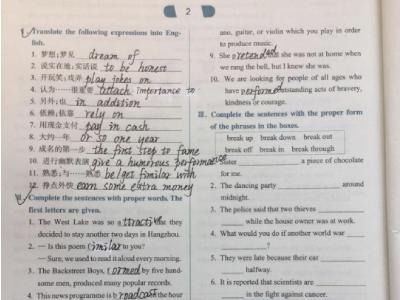 2
I. Translate the following expressions into Eng-
lish.
1. 梦想;梦见 dream of
2. 说实在地;实话说 to be honest
3. 开玩笑;戏弄 play jokes on
4. 认为……很重要 attach importance to
5. 另外;也 in addition
6. 依赖;依靠 rely on
7. 用现金支付 pay in cash
8. 大约一年 or so one year
9. 成名的第一步 the first step to fame
10. 进行幽默表演 give a humorous performance
11. 熟悉;与……熟悉 be/get fimilar with
12. 挣点外快 earn some extra money
II. Complete the sentences with proper words. The
first letters are given.
1. The West Lake was so attractive they
decided to stay another two days in Hangzhou.
2. — Is this poem fimilar to you?
— Sure, we used to read it aloud every morning.
3. The Backstreet Boys, formed by five hand-
some men, produced many popular records.
4. This news programme is broadcast the hour
ano, guitar, or violin which you play in order
to produce music.
9. She pretended that she was not at home when
we rang the bell, but I knew she was.
10. We are looking for people of all ages who
have performed outstanding acts of bravery,
kindness or courage.
III. Complete the sentences with the proper form
of the phrases in the boxes.
break up break down break out
break off break in break through
1. Sister a piece of chocolate
for me.
2. The dancing party around
midnight.
3. The police said that two thieves
while the house owner was at work.
4. What would you do if another world war
?
5. They were late because their car
halfway.
6. It is reported that scientists are
in the fight against cancer.